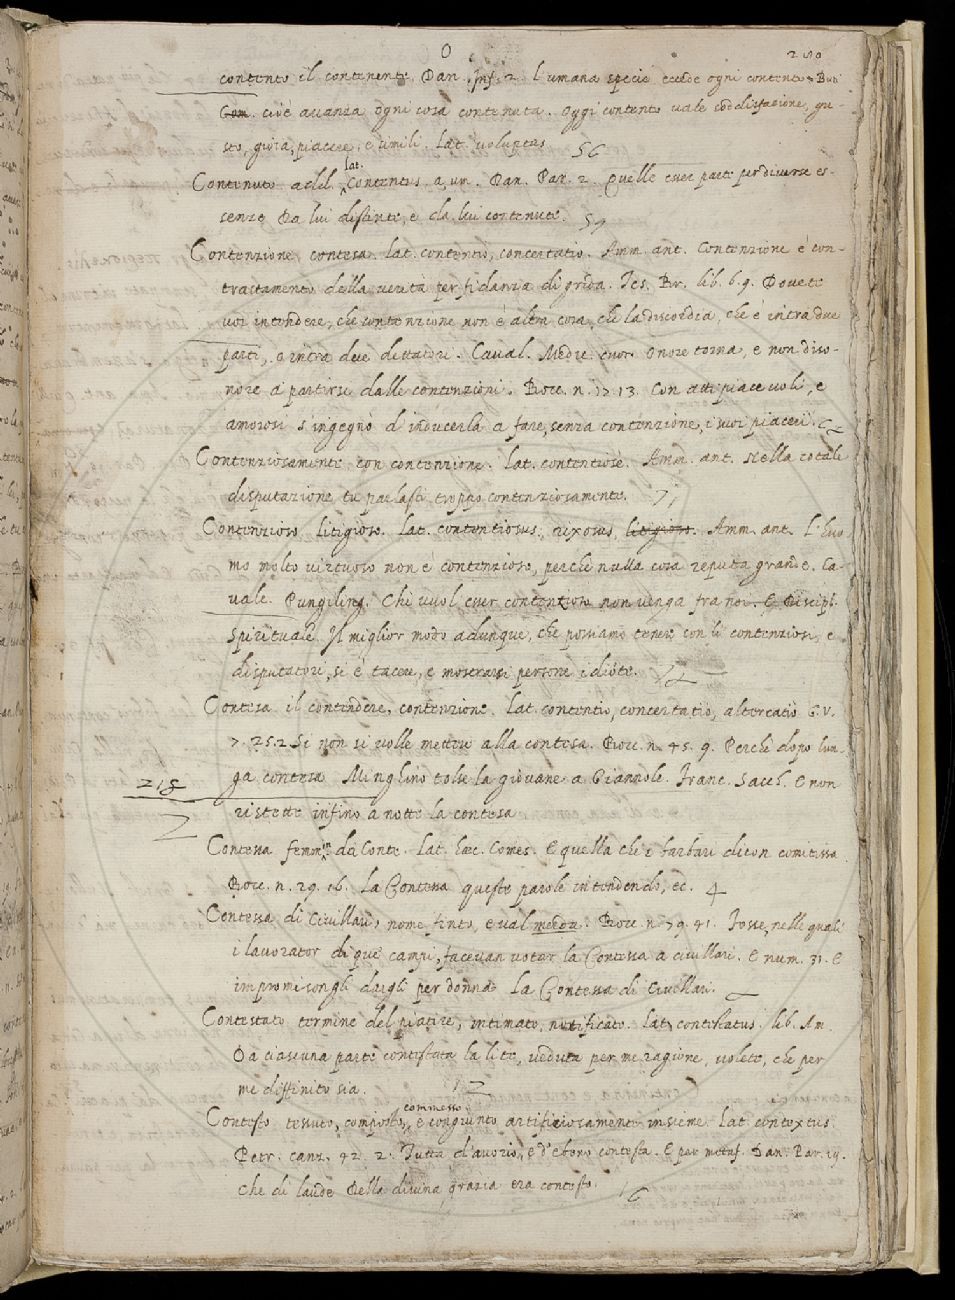 O 210
contento il continente. Dan. Inf. 2. L'umana specie eccede ogni contento. But.
Com. cioè avanza ogni cosa contenuta. Oggi contento vale soddisfazione, gu-
sto, gioia, piacere, e simili. Lat. voluptas 56
Contenuto add. Lat. Contentus, a, um. Dan. Par. 2. Quelle esser parti per diverse es-
senze Da lui distinte, e da lui contenute.
Contenzione, contesa. Lat. contentio, concertatio. Amm. ant. Contenzione è con-
trastamento della verità per fidanza di grida. Tes. Br. lib. 6. 9. Dovete
voi intendere, che contenzione non è altra cosa, che la discordia, che è intra due
parti, o intra due dettatori. Caval. Medic. cuor. Onore torna, e non diso-
nore a partirsi dalle contenzioni. Bocc. n. 17 13. Con atti piacevoli, e
amorosi s'ingegnò d'inducerla a fare, senza contenzione, i suoi piaceri.
Contenziosamente, con contenzione. Lat. contentiosè. Amm. ant. Nella cotale
disputazione tu parlasti troppo contenziosamente.
Contenzioso, litigioso. Lat. contentiosus, rixosus, litigiosus. Amm. ant. L'huo
mo molto virtuoso non è contenzioso, perchè nulla cosa reputa grande. Ca-
vale. Pungiling. Chi vuol esser contentioso non venga fra noi. E Discipl.
Spirituale. Il miglior modo adunque, che possiamo tenere con li contenziosi, e
disputatori, si è tacere, e mostrarsi persone idiote. 12
Contesa il contendere, contenzione. Lat. contentio, concertatio, altercatio. G. V.
7. 25. 2 Si non si volle mettere alla contesa. Bocc. n. 45. 9. Perchè dopo lun-
218 ga contesa Minghino tolse la giovane a Giannole. Franc. Sacch. E non
ristette infino a notte la contesa
Contessa femm. di Conte. Lat. haec. Comes. E quella che i barbari dicon comitissa.
Bocc. n. 29. 16. La Contessa queste parole intendendo, ec. 4
Contessa di Civillari, nome finto, e val merda. Bocc. n. 79. 41. Fosse, nelle quali
i lavorator di que' campi, facevan votar la Contessa a civillari. E num. 31. E
impromisongli dargli per donna La Contessa di Civillari.
Contestato termine del piatire, intimato, notificato. Lat. contestatus. lib. Am
Da ciascuna parte contestata la lite, veduta per me ragione, volete, che per
me diffinito sia. 12
Contesto tessuto, composto, commesso, e congiunto artifiziosamente insieme. Lat. contextus.
Petr. canz. 42. 2. Tutta d'avorio, e d'ebeno contesta. E per metaf. Dan. Par. 19.
che di laude Della divina grazia era contesto. 16